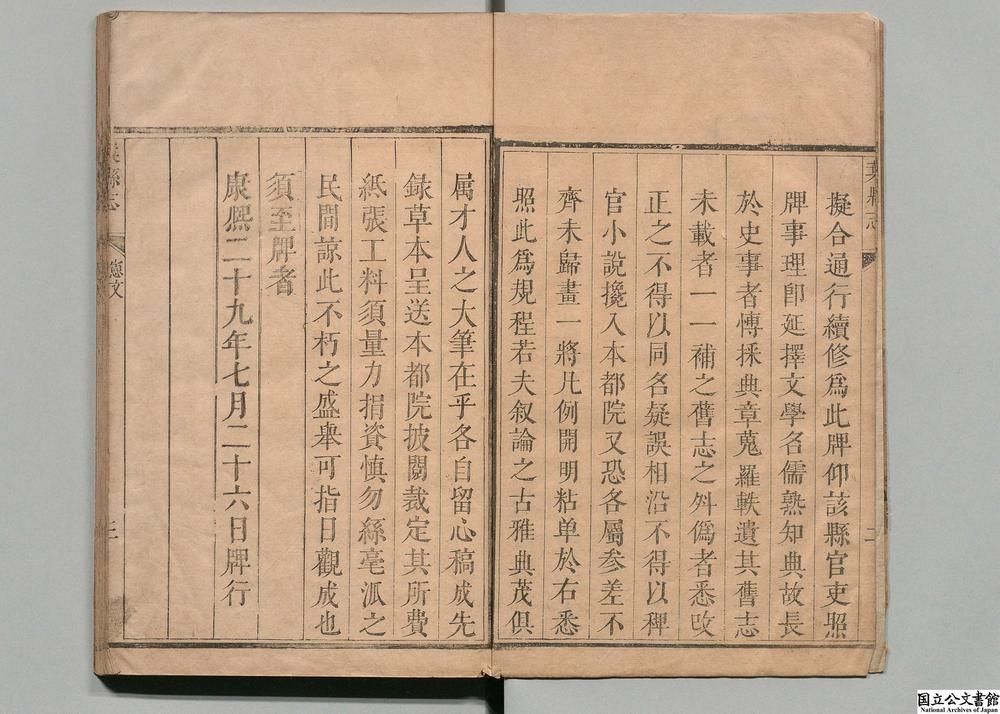 葉縣志
擬合通行續修爲此牌仰該縣官吏照
牌事理卽延擇文學名儒熟知典故長
於史事者愽採典章蒐羅軼遺其舊志
未載者一一補之舊志之舛僞者悉攺
正之不得以同名疑誤相沿不得以稗
官小說攙入本都院又恐各屬參差不
齊未歸畫一將凡例開明粘单於右悉
照此爲規程若夫叙論之古雅典茂俱
属才人之大筆在乎各自留心稿成先
録草本呈送本都院披閱裁定其所費
紙張工料須量力捐資慎勿絲毫派之
民間諒此不朽之盛舉可指日觀成也
須至牌者
康熙二十九年七月二十六日牌行
葉縣志
憲文
三
国立公文書館
National Archives of Japan